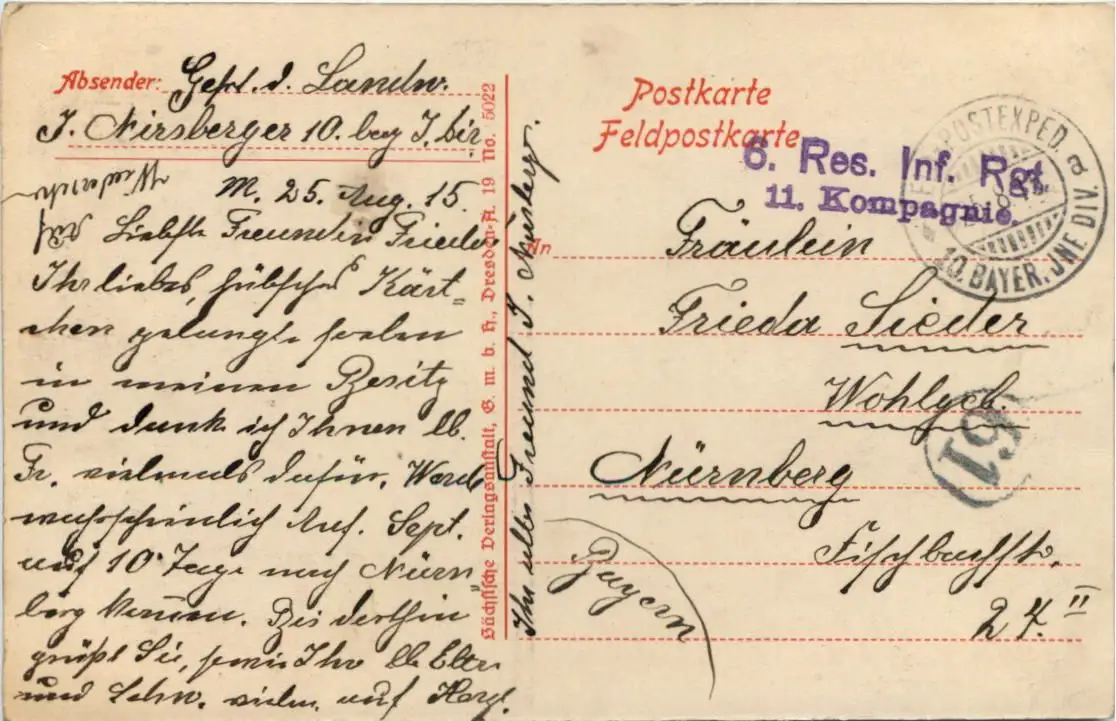 Absender: Gefr. d. Landw.
J. Nirsberger 10. bay J. bir
M. 25. Aug. 15.
Liebste Freundin Frieda!
Ihr liebes, hübsches Kärt=
chen gelangte soeben
in meinen Besitz
und danke ich Ihnen lb.
Fr. vielmals dafür. Werde
wahrscheinlich Anf. Sept.
auf 10 Tage nach Nürn
berg kommen. Bis dorthin
grüßt Sie, sowie Ihre lb Eltern
und Schw. vielm. auf Herzl.
Wiedersehn
auf
Ihr alter Freund J. Nirsberger.
Sächsische Verlagsanstalt, G. m. b. H., Dresden-A. 19 No. 5022
Postkarte
Feldpostkarte
6. Res. Inf. Rgt.
11. Kompagnie.
FELDPOSTEXPED. a
10. BAYER. JNF. DIV.
An
Fräulein
Frieda Sieder
Wohlgeb.
Nürnberg
Fischbachstr.
27. II
Bayern
19